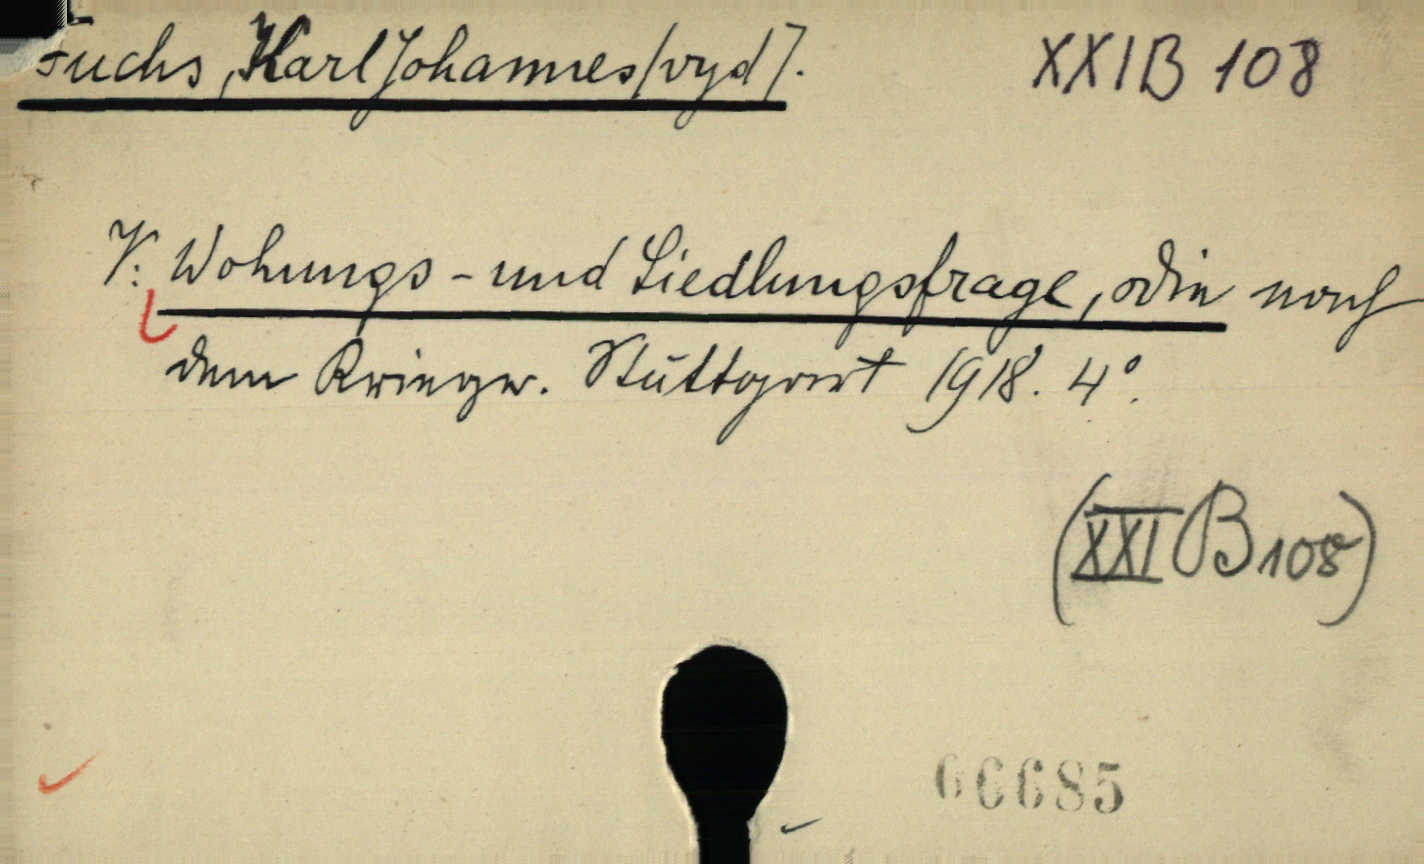 Fuchs, Karl Johannes [vyd].
XXI B 108
V: Wohungs- und Siedlungsfrage, die nach
dem Kriege. Stuttgart 1918. 4°.
(XXI B 108)
66685